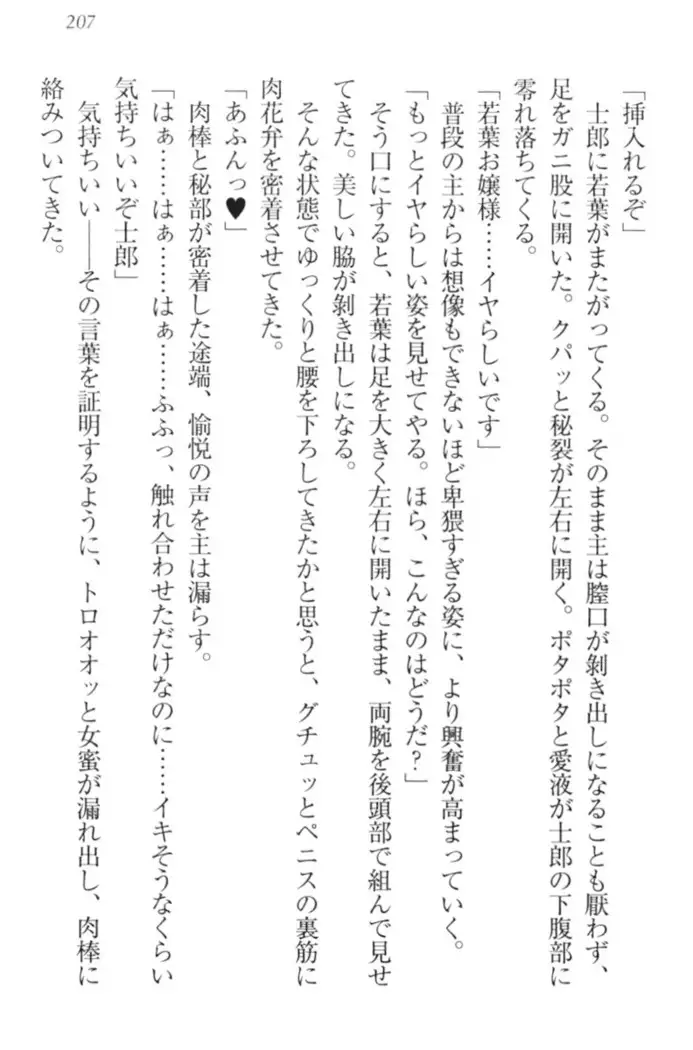 207
「挿入れるぞ」
　士郎に若葉がまたがってくる。そのまま主は膣口が剝き出しになることも厭わず、
足をガニ股に開いた。クパッと秘裂が左右に開く。ポタポタと愛液が士郎の下腹部に
零れ落ちてくる。
「若葉お嬢様……イヤらしいです」
　普段の主からは想像もできないほど卑猥すぎる姿に、より興奮が高まっていく。
「もっとイヤらしい姿を見せてやる。ほら、こんなのはどうだ？」
　そう口にすると、若葉は足を大きく左右に開いたまま、両腕を後頭部で組んで見せ
てきた。美しい脇が剝き出しになる。
　そんな状態でゆっくりと腰を下ろしてきたかと思うと、グチュッとペニスの裏筋に
肉花弁を密着させてきた。
「あふんっ♥」
　肉棒と秘部が密着した途端、愉悦の声を主は漏らす。
「はぁ……はぁ……はぁ……ふふっ、触れ合わせただけなのに……イキそうなくらい
気持ちいいぞ士郎」
　気持ちいい――その言葉を証明するように、トロオオッと女蜜が漏れ出し、肉棒に
絡みついてきた。